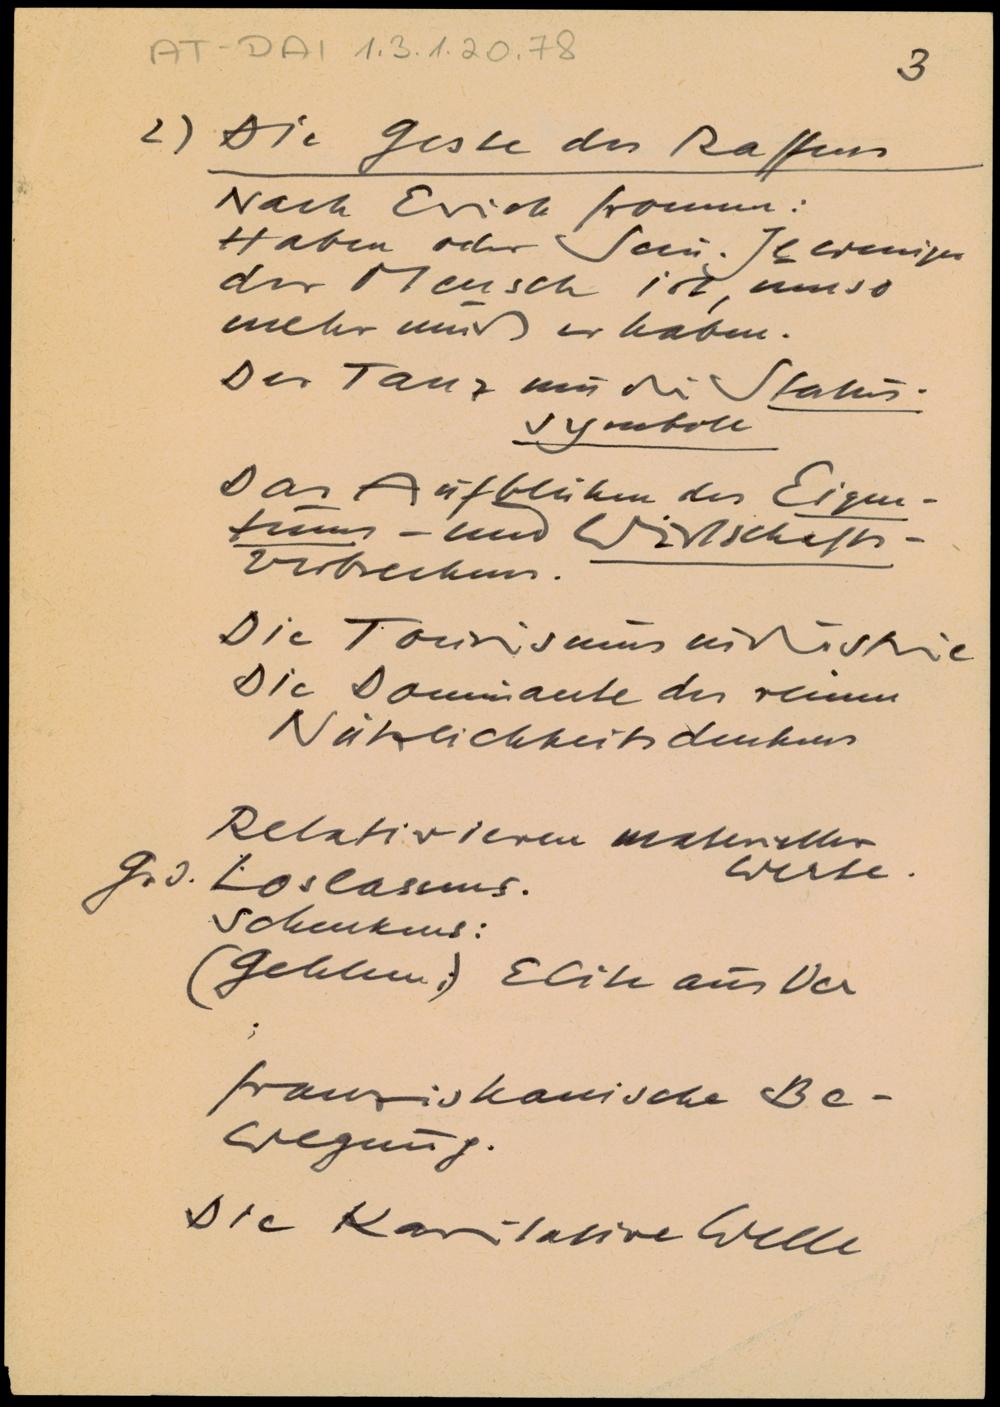 AT-DAI 1.3.1.20.78
3
2) Die Geste des Raffens
Nach Erich Fromm:
Haben oder Sein. Je weniger
der Mensch ist, umso
mehr muß er haben.
Der Tanz um die Status-
symbole
Das Aufblühen des Eigen-
tums- und Wirtschafts-
verbrechens.
Die Tourismusindustrie
Die Dominante des reinen
Nützlichkeitsdenkens
Relativieren materieller
Werte.
Loslassens.
Schenkens:
(Gehlen:) Elite aus Ver
:
franziskanische Be-
wegung.
Die Karitative Welle